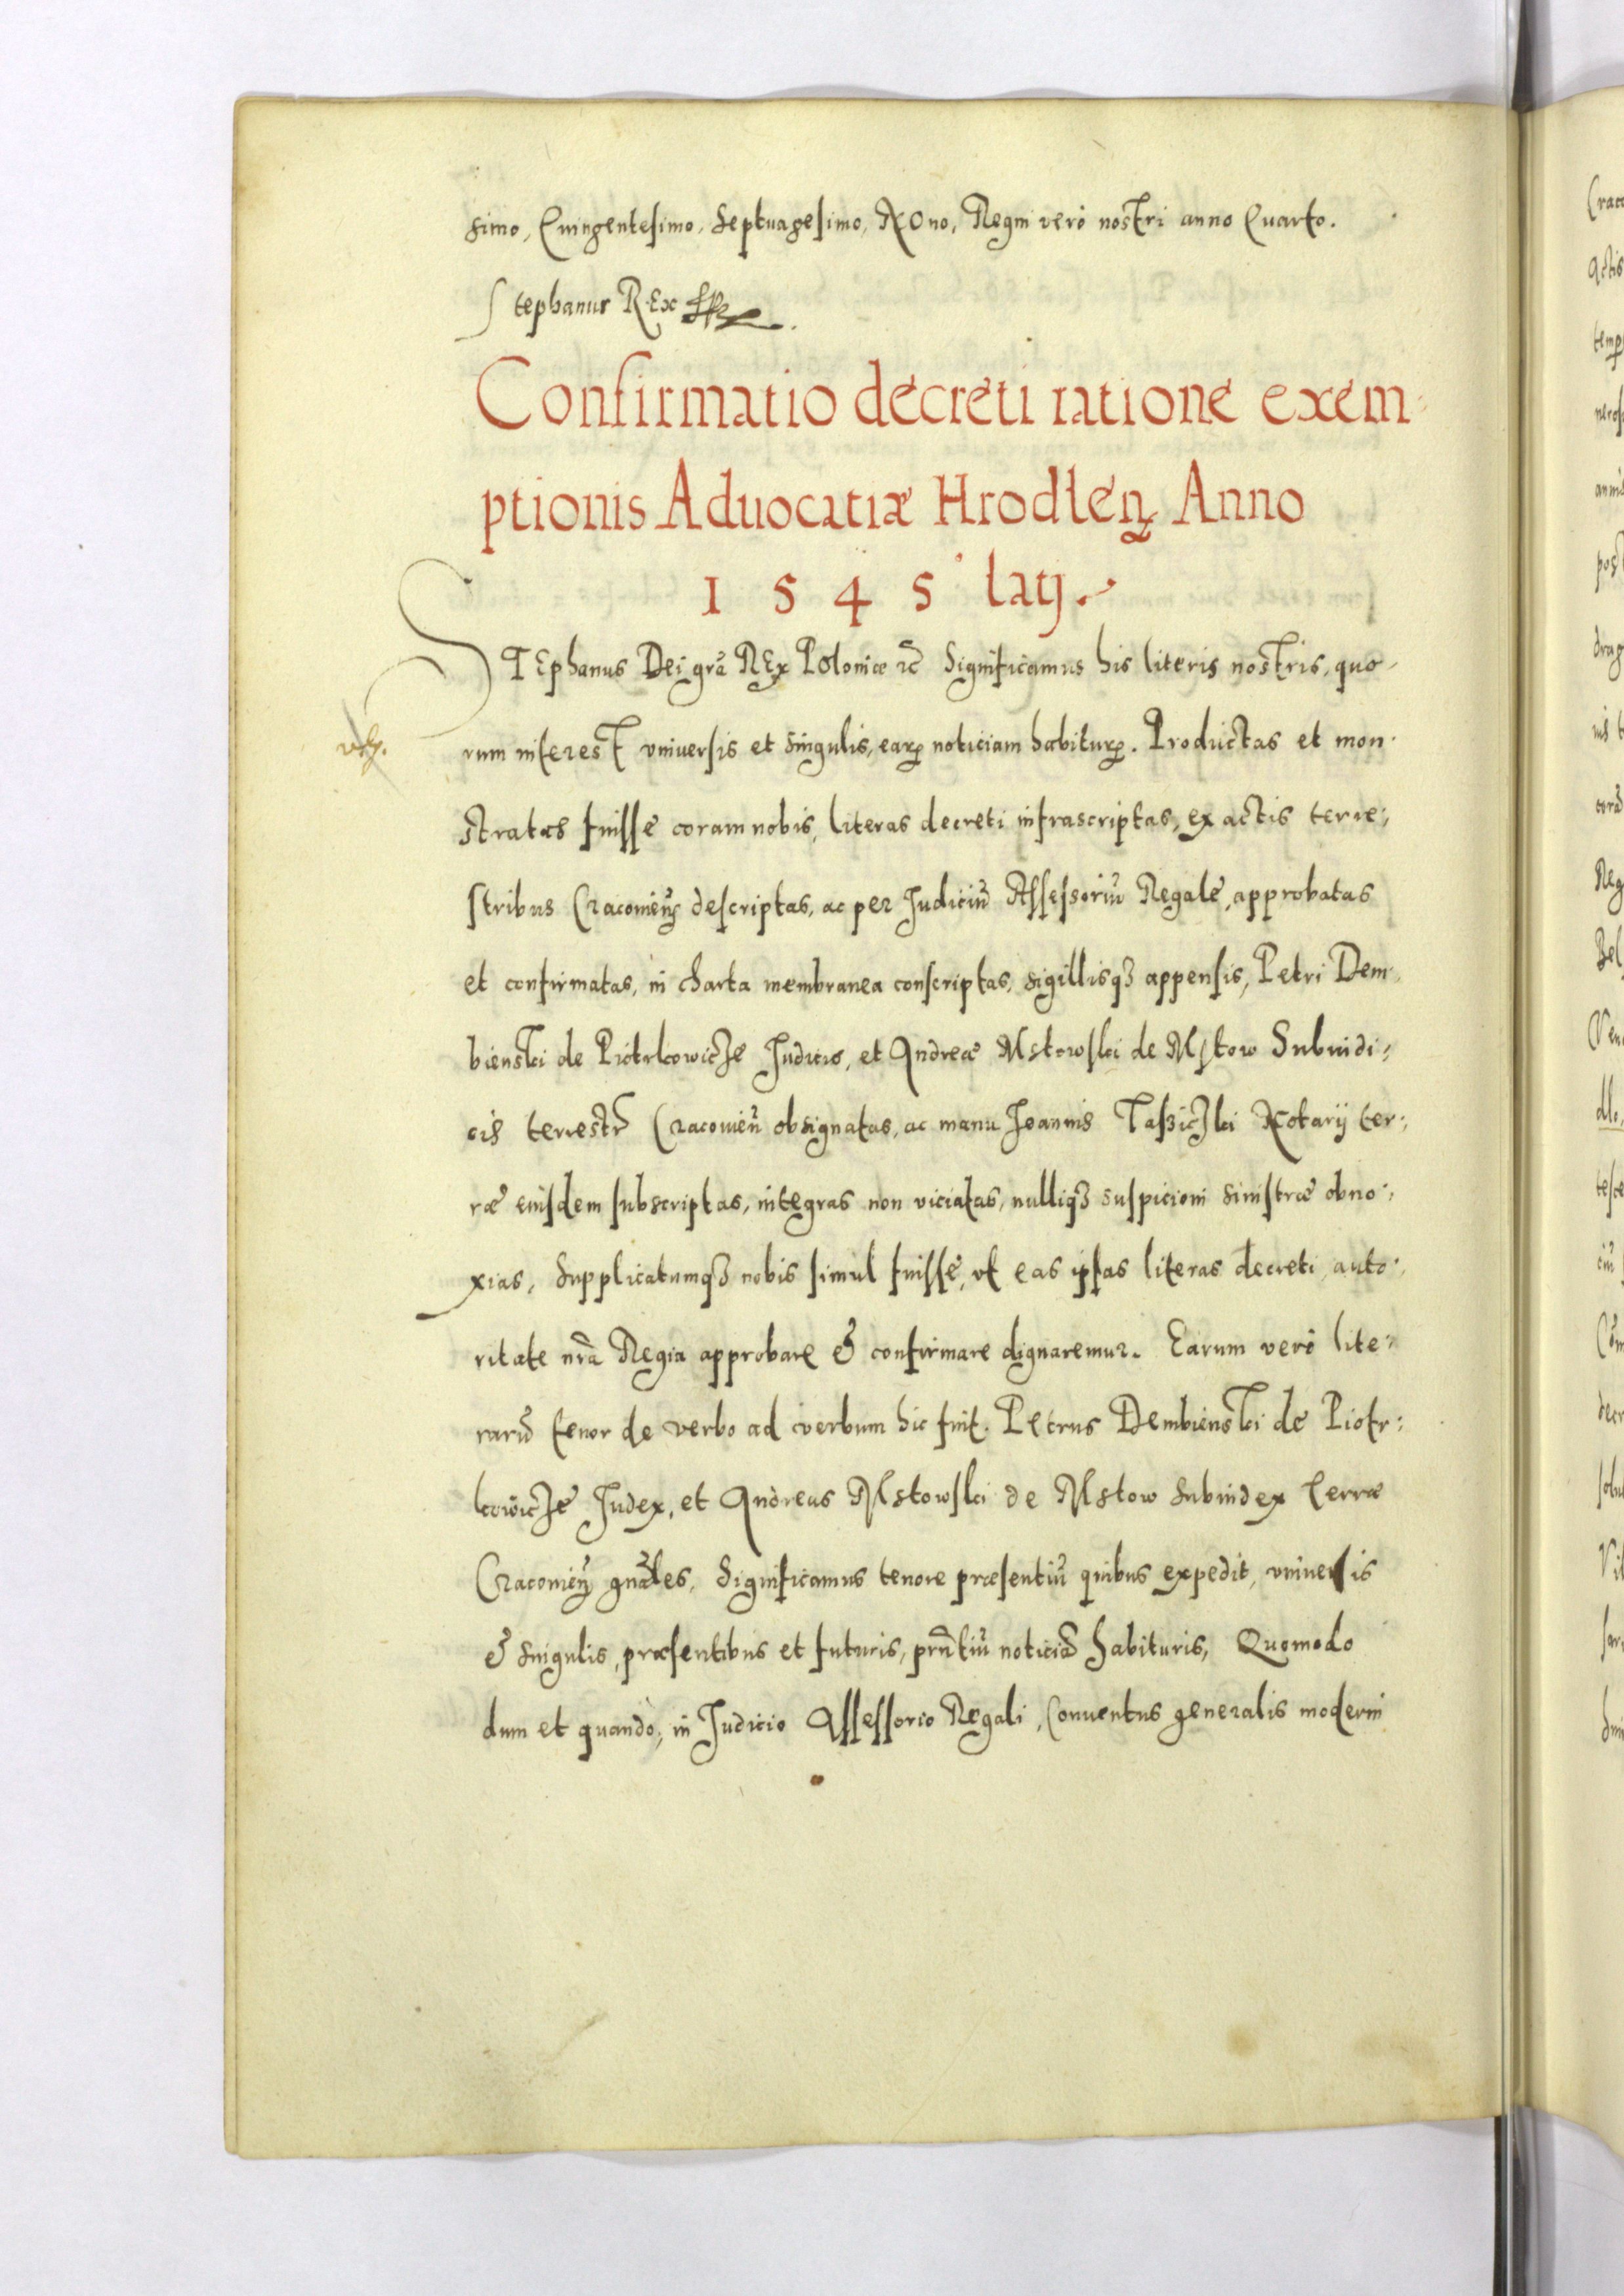 simo, Quingentesimo, Septuagesimo, Nono, Regni verò nostri anno Quarto.
Stephanus REx
Confirmatio decreti ratione exem-
ptionis Aduocatiæ Hrodlen̄ Anno
1545 latj.
STEphanus Dei grã REx Poloniæ &c Significamus his literis nostris, quo-
rum interest vniuersis et singulis, earꝝ noticiam habiturꝝ. Productas et mon-
stratas fuisse coram nobis, literas decreti infrascriptas, ex actis terre-
stribus Cracouien̄ descriptas, ac per Judiciũ Assessoriũ Regale, approbatas
et confirmatas, in charta membranea conscriptas, sigillisqꝫ appensis, Petri Dem-
bienski de Piotrkowicze Judicis, et Andreæ Mstowski de Mstow Subiudi-
cis terrestr̄ Cracouien̄ obsignatas, ac manu Joannis Taßiczki Notarij ter-
ræ eiusdem subscriptas, integras non viciatas, nulliqꝫ suspicioni sinistræ obno-
xias, Supplicatumqꝫ nobis simul fuisse, vt eas ipsas literas decreti, auto-
ritate nr̃a Regia approbare & confirmare dignaremur. Earum verò lite-
rarũ tenor de verbo ad verbum hic fuit. Petrus Dembienski de Piotr-
kowicze Judex, et Andreas Mstowski de Mstow Subiudex terræ
Cracouien̄ gnãles, Significamus tenore præsentiũ quibus expedit, vniuersis
& singulis, præsentibus et futuris, prñtiũ noticiã habituris, Quomodo
dum et quando, in Judicio Assessorio Regali, Conuentus generalis moderni